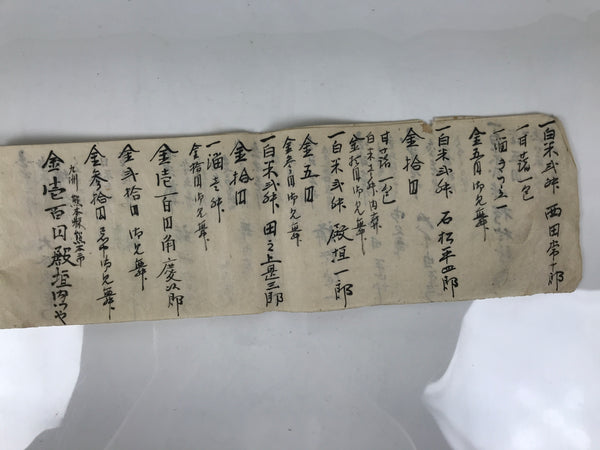 一白米弐舛 西田常十郎
一甘藷一包
一酒
金五円御見舞
一白米弐舛 石松平四郎
金拾円
甘藷一包
金拾円御見舞
一白米弐舛 殿垣一郎
金五円
金参円御見舞
一白米弐舛 田之上甚三郎
金拾円
一酒壱舛
金拾円御見舞
金壱百円角慶次郎
金弐拾円 御見舞
金参拾円 御見舞
九州 熊本県熊本市
金壱百円殿垣